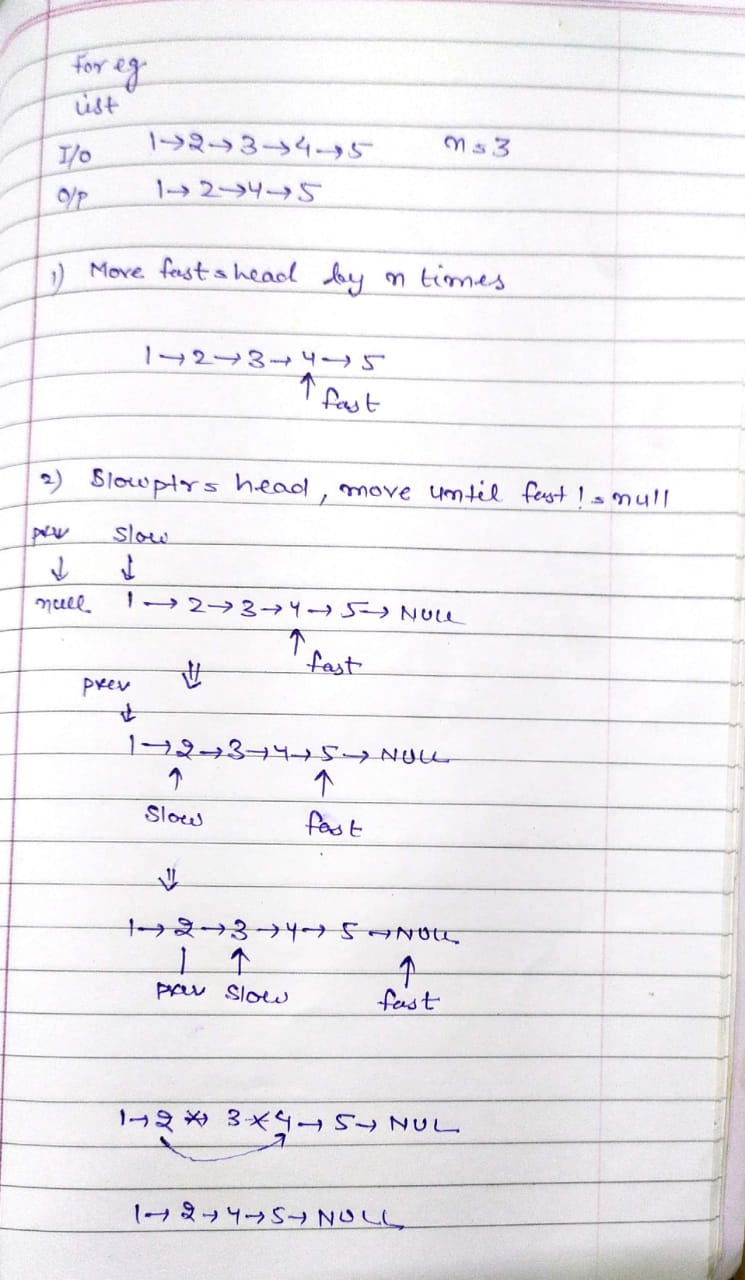 for eg
list
I/o 1→2→3→4→5 n=3
O/P 1→2→4→5
1) Move fast=head by n times
1→2→3→4→5
↑ fast
2) Slowptr= head, move until fast != null
prev slow
↓ ↓
null 1→2→3→4→5→NULL
↑ fast
⇓
prev
↓
1→2→3→4→5→NULL
↑ ↑
slow fast
⇓
1→2→3→4→5→NULL
| ↑ ↑
prev slow fast
1→2 → 3 → 4→5→NUL
1→2→4→5→NULL